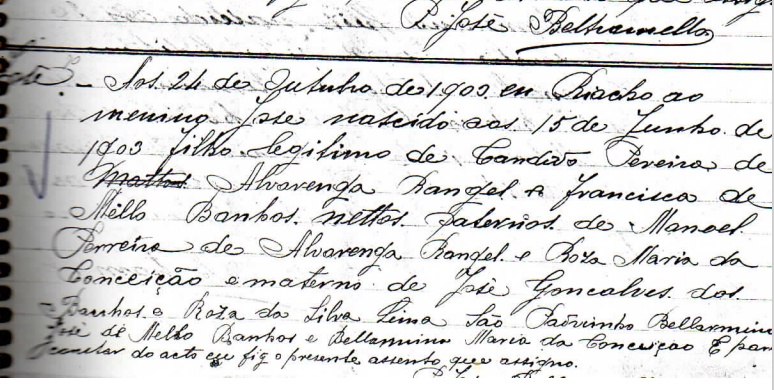 P. José Beltramello
Aos 24 de Outubro de 1903 eu Riacho ao
menino José nascido aos 15 de Junho de
1903 filho legitimo de Candido Pereira de
Mattos Alvarenga Rangel e Francisca de
Mello Banhos. nettos paternos de Manoel
Perreira de Alvarenga Rangel e Roza Maria da
Conceição e materno de José Goncalves dos
Banhos e Roza da Silva Lima São Padrinho Bellarmino
José de Mello Banhos e Bellarmina Maria da Conceiçao E para
constar do acto eu fiz o presente assento que assigno.